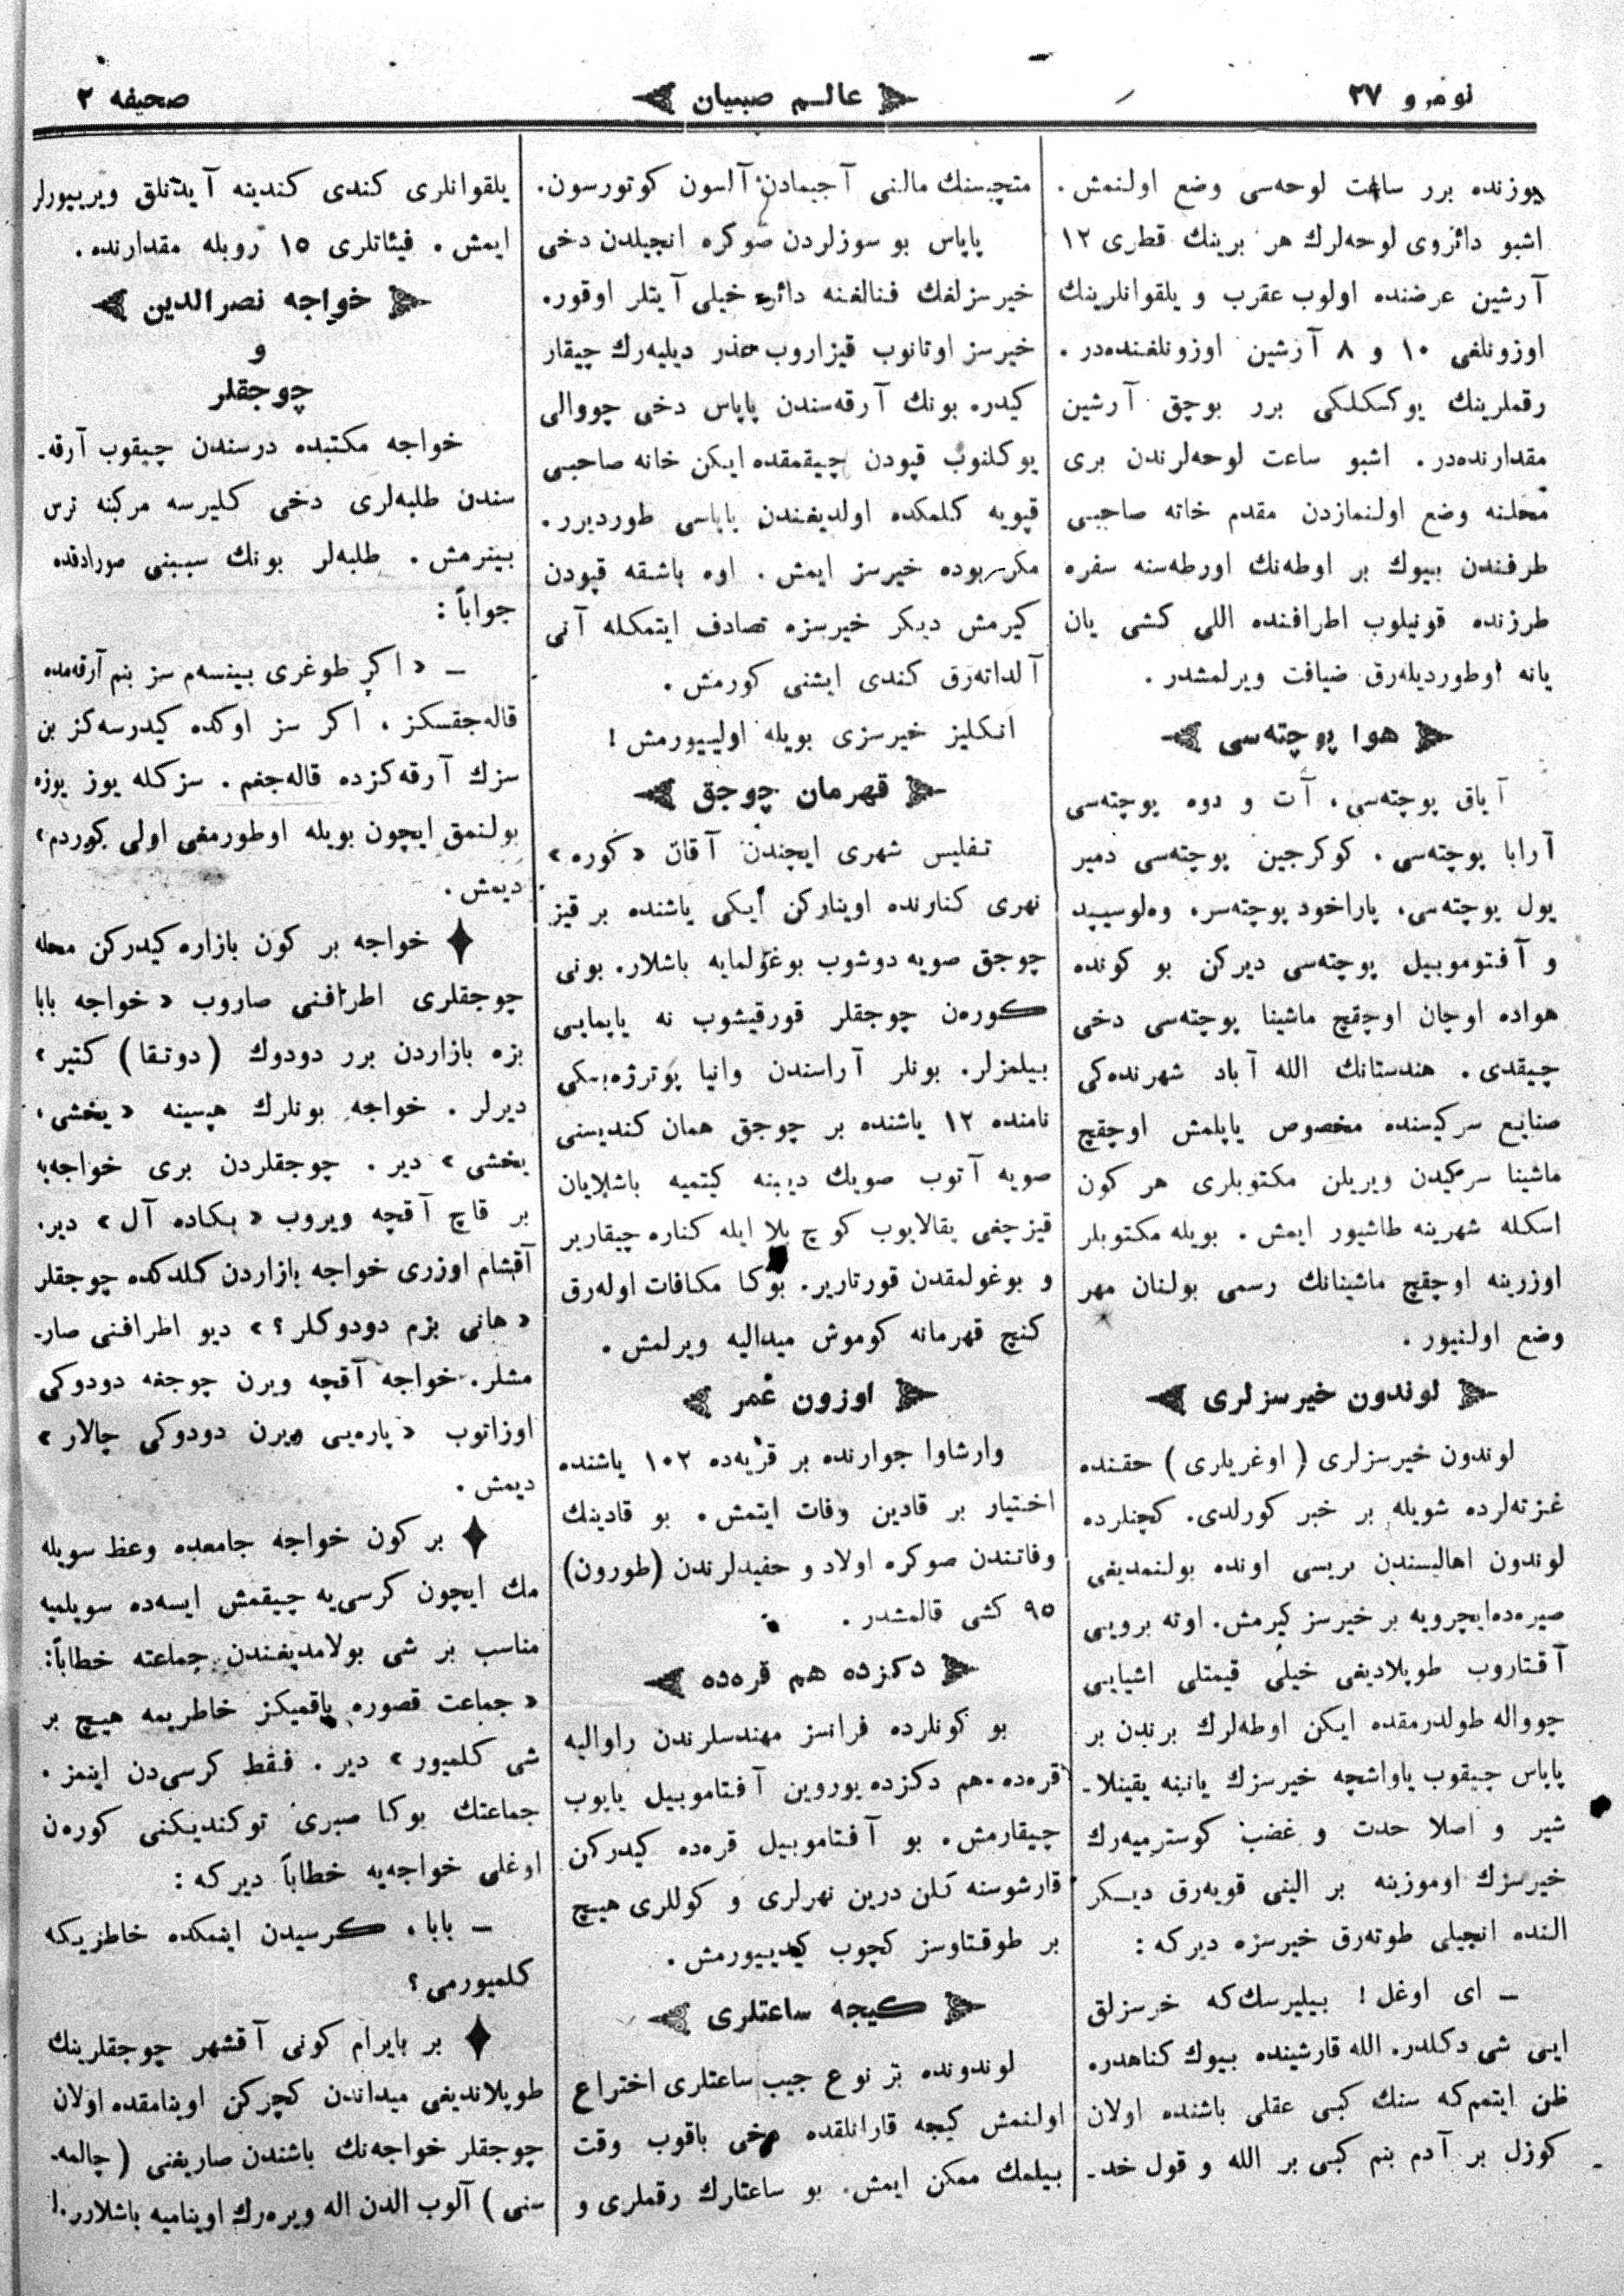 نومرو ٢٧
عالم صبیان
صحیفه ٢
یوزنده برر ساعت لوحه‌سی وضع اولنمش.
اشبو دائروی لوحه‌لرك هر برینك قطری ١٢
آرشین عرضنده اولوب عقرب و یلقوانلرینك
اوزونلغی ١٠ و ٨ آرشین اوزونلغنده‌در.
رقملرینك یوكسكلكی برر بوچق آرشین
مقدارنده‌در. اشبو ساعت لوحه‌لرندن بری
محلنه وضع اولنمازدن مقدم خانه صاحبی
طرفندن بیوك بر اوطه‌نك اورطه‌سنه سفره
طرزنده قونیلوب اطرافنده اللی كشی یان
یانه اوطوردیله‌رق ضیافت ویرلمشدر.
هوا پوچته‌سی
آیاق پوچته‌سی، آت و دوه پوچته‌سی
آرابا پوچته‌سی، كوكرجین پوچته‌سی دمیر
یول پوچته‌سی، پاراخود پوچته‌سر، وه‌لوسیپد
و آفتوموبیل پوچته‌سی دیركن بو كونده
هواده اوچان اوچقچ ماشینا پوچته‌سی دخی
چیقدی. هندستانك الله آباد شهرنده‌كی
صنایع سركیسنده مخصوص یاپلمش اوچقچ
ماشینا سركیدن ویریلن مكتوبلری هر كون
اسكله شهرینه طاشیور ایمش. بویله مكتوبلر
اوزرینه اوچقچ ماشینانك رسمی بولنان مهر
وضع اولنیور.
لوندون خیرسزلری
لوندون خیرسزلری (اوغریلری) حقنده
غزته‌لرده شویله بر خبر كورلدی. كچنلرده
لوندون اهالیسندن بریسی اونده بولنمدیغی
صیره‌ده ایچرویه بر خیرسز كیرمش. اوته برویی
آقتاروب طوپلادیغی خیلی قیمتلی اشیایی
جوواله طولدرمقده ایكن اوطه‌لرك برندن بر
پاپاس چیقوب یاواشچه خیرسزك یانینه یقینلا-
شیر و اصلا حدت و غضب كوسترمیه‌رك
خیرسزك اوموزینه بر الینی قویه‌رق دیكر
النده انجیلی طوته‌رق خیرسزه دیركه:
ـ ای اوغل! بیلیرسك‌كه خرسزلق
ایی شی دكلدر. الله قارشینده بیوك كناهدر.
ظن ایتمم‌كه سنك كبی عقلی باشنده اولان
كوزل بر آدم بنم كبی بر الله و قول خد-
متچیسنك مالنی آجیمادن آلسون كوتورسون.
پاپاس بو سوزلردن صوكره انجیلدن دخی
خیرسزلغك فنالغنه دائر خیلی آیتلر اوقور.
خیرسز اوتانوب قیزاروب عذر دیلیه‌رك چیقار
كیدر. بونك آرقه‌سندن پاپاس دخی چووالی
یوكلنوب قپودن چیقمقده ایكن خانه صاحبی
قپویه كلمكده اولدیغندن پاپاسی طوردیرر.
مكر بوده خیرسز ایمش. اوه باشقه قپودن
كیرمش دیكر خیرسزه تصادف ایتمكله آنی
آلداته‌رق كندی ایشنی كورمش.
انكلیز خیرسزی بویله اولییورمش!
قهرمان چوجق
تفلیس شهری ایچندن آقان «كوره»
نهری كنارنده اوینارکن ایكی یاشنده بر قیز
چوجق صویه دوشوب بوغولمایه باشلار. بونی
كوره‌ن چوجقلر قورقیشوب نه یاپمایی
بیلمزلر. بونلر آراسندن وانیا پوترژه‌بسكی
نامنده ١٢ یاشنده بر چوجق همان كندیسنی
صویه آتوب صویك دیبنه كیتمیه باشلایان
قیزچغی یقالایوب كوچ بلا ایله كناره چیقاریر
و بوغولمقدن قورتاریر. بوكا مكافات اوله‌رق
كنچ قهرمانه كوموش میدالیه ویرلمش.
اوزون عمر
وارشاوا جوارنده بر قریه‌ده ١٠٢ یاشنده
اختیار بر قادین وفات ایتمش. بو قادینك
وفاتندن صوكره اولاد و حفیدلرندن (طورون)
٩٥ كشی قالمشدر.
دكزده هم قره‌ده
بو كونلرده فرانسز مهندسلرندن راوالیه
قره‌ده هم دكزده یوروین آفتاموبیل یاپوب
چیقارمش. بو آفتاموبیل قره‌ده كیدركن
قارشوسنه كلن درین نهرلری و كوللری هیچ
بر طوقتاوسز كچوب كیدییورمش.
كیجه ساعتلری
لوندونده بر نوع جیب ساعتلری اختراع
اولنمش كیجه قارانلقده دخی باقوب وقت
بیلمك ممكن ایمش. بو ساعتلرك رقملری و
یلقوانلری كندی كندینه آیدنلق ویرییورلر
ایمش. فیئاتلری ١٥ روبله مقدارنده.
خواجه نصرالدین
و
چوجقلر
خواجه مكتبده درسندن چیقوب آرقه-
سندن طلبه‌لری دخی كلیرسه مركبنه ترس
بینرمش. طلبه‌لر بونك سببنی صورادقده
جواباً:
ـ «اكر طوغری بینسه‌م سز بنم آرقه‌مده
قاله‌جقسكز، اكر سز اوكده كیدرسه‌كز بن
سزك آرقه‌كزده قاله‌جغم. سزكله یوز یوزه
بولنمق ایچون بویله اوطورمغی اولی كوردم»
دیمش.
خواجه بر كون بازاره كیدركن محله
چوجقلری اطرافنی صاروب «خواجه بابا
بزه بازاردن برر دودوك (دوتقا) كتیر»
دیرلر. خواجه بونلرك هپسینه «یخشی،
یخشی» دیر. چوجقلردن بری خواجه‌یه
بر قاچ آقچه ویروب «بكاده آل» دیر.
آقشام اوزری خواجه بازاردن كلدكده چوجقلر
«هانی بزم دودوكلر؟» دیو اطرافنی صار-
مشلر. خواجه آقچه ویرن چوجغه دودوكی
اوزاتوب «پاره‌یی ویرن دودوكی چالار»
دیمش.
بر كون خواجه جامعده وعظ سویله
مك ایچون كرسی‌یه چیقمش ایسه‌ده سویلمیه
مناسب بر شی بولامدیغندن جماعته خطاباً:
«جماعت قصوره باقمیكز خاطریمه هیچ بر
شی كلمیور» دیر. فقط كرسی‌دن اینمز.
جماعتك بوكا صبری توكندیكنی كوره‌ن
اوغلی خواجه‌یه خطاباً دیركه:
ـ بابا، كرسیدن اینمكده خاطریكه
كلمیورمی؟
بر بایرام كونی آقشهر چوجقلرینك
طوپلاندیغی میداندن كچركن اوینامقده اولان
چوجقلر خواجه‌نك باشندن صاریغنی (چالمه-
سنی) آلوب الدن اله ویره‌رك اوینامیه باشلارر.